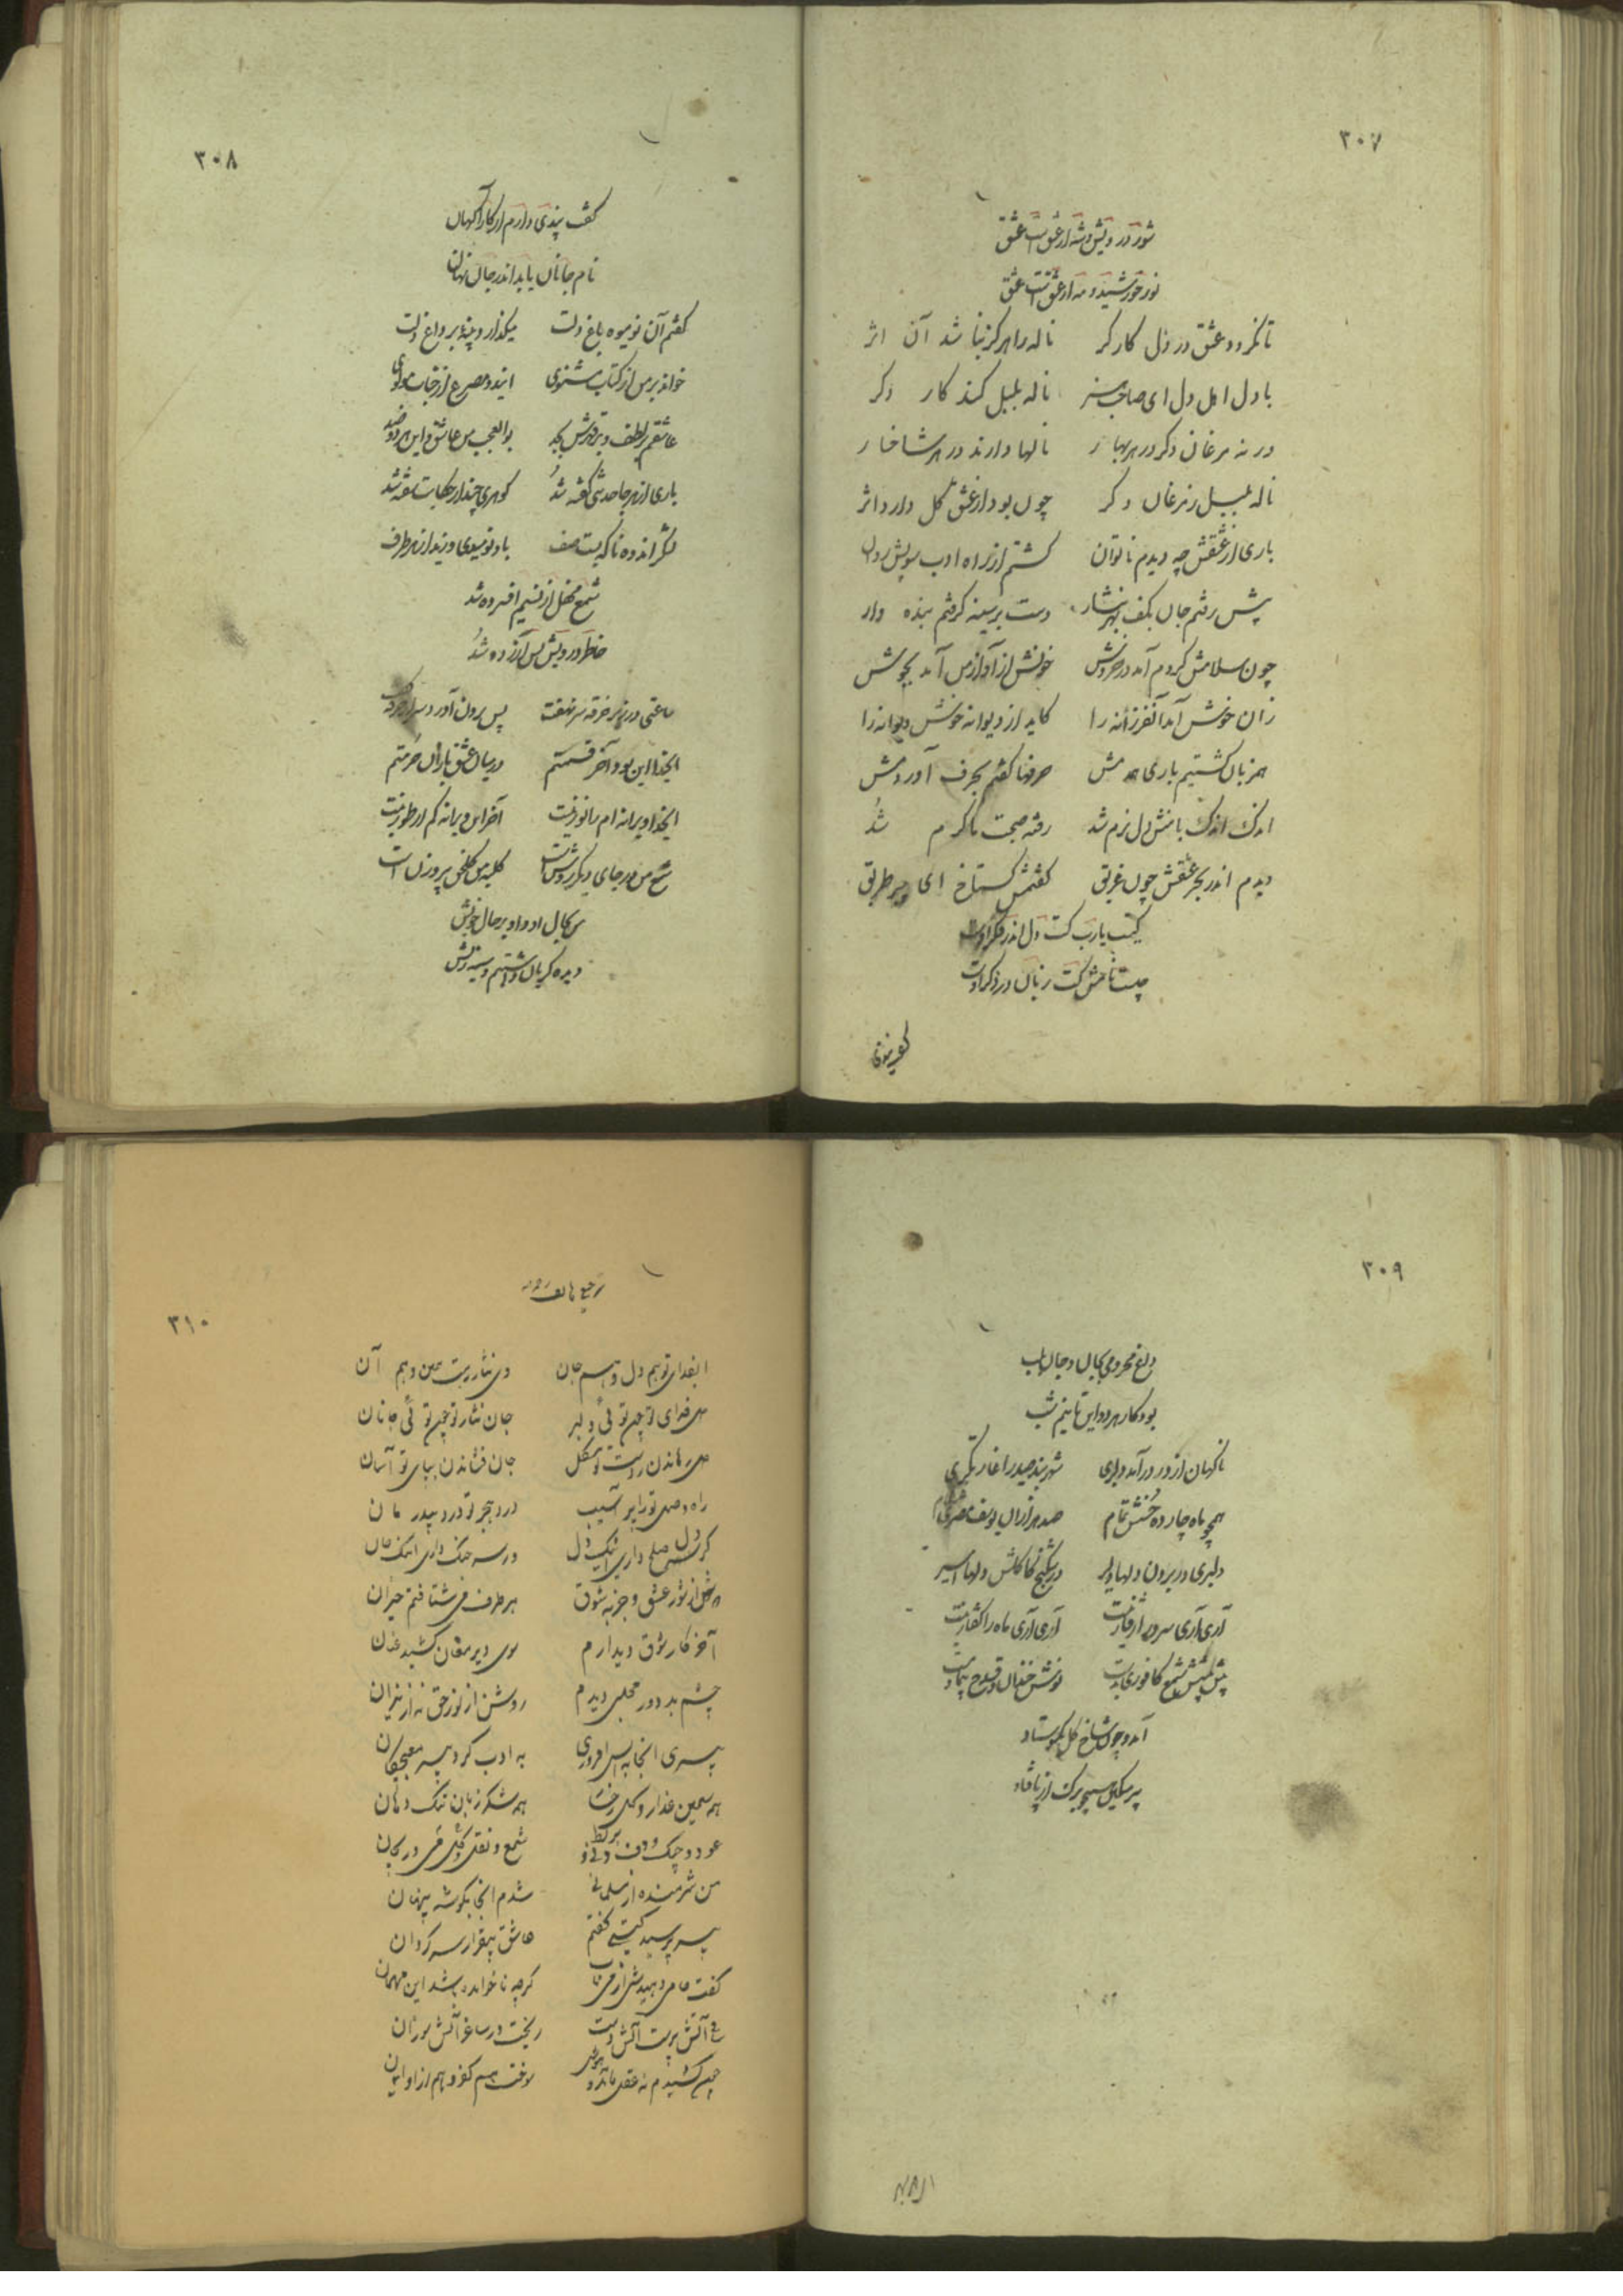 ۳۰۷
شور درویش و شه از عشق است عشق
نور خورشید و مه از عشق است عشق
تا نگردد عشق در دل کارگر ناله را هرگز نباشد آن اثر
با دل اهل دل ای صاحب هنر ناله بلبل کند کار دگر
ورنه مرغان دگر در هر بهار نالها دارند در هر شاخسار
ناله بلبل ز مرغان دگر چون بود از عشق گل دارد اثر
باری از عشقش چه دیدم ناتوان گشتم از راه ادب سویش روان
پیش رفتم جان بکف بهر نثار دست بر سینه گرفتم بنده وار
چون سلامش کردم آمد در خروش خونش از آواز من آمد بجوش
زان خوش آمد آنفرزانه را کاید از دیوانه خوش دیوانه را
همزبان گشتیم باری همدمش حرفها گفتم بحرف آوردمش
اندک اندک با منش دل نرم شد رفته صحبت گرم شد
دیدم اندر بحر عشقش چون غریق گفتمش گستاخ ای پیر طریق
کیست یارب کت دل اندر فکر اوست
چیست نامش کت زبان در ذکر اوست
۳۰۸
گفت پندی دارم از کارآگهان
نام جانان باید اندر جان نهان
گفتم آن نومیوه باغ دلت میگذارد پنبه بر داغ دلت
خواند بر من از کتاب مثنوی ایندو مصرع از جناب مولوی
عاشقم بر لطف و بر قهرش بجد بوالعجب من عاشق این هر دو ضد
باری از هر جا حدیثی گفته شد گوهری چند از حکایت سفته شد
لشگر اندوه ناگه بست صف باد نومیدی وزید از هر طرف
شمع محفل از نسیم افسرده شد
خاطر درویش بس آزرده شد
ساعتی در زیر خرقه سر نهفت پس برون آورد سر از خرقه گفت
ایخدا این بود آخر قسمتم در میان عشق بازان حرمتم
ایخدا ویرانه ام را نور نیست آخر این ویرانه کم از طور نیست
شمع من در جای دیگر روشن است کلبه من گلخن پیرزن است
من بحال او و او بر حال خویش
دیده گریان داشتیم و سینه ریش
۳۰۹
داغ محرومی بجان و جان بلب
بود کار هر دو این تا نیم شب
ناگهان از در درآمد دلبری شهر بند صبر را غارتگری
همچو ماه چارده حسنش تمام صد هزاران یوسف مصری غلام
دلبری در بردن دلها دلیر در شکنج کاکلش دلها اسیر
آری آری سرو را رفتار نیست آری آری ماه را گفتار نیست
پیش پیشش شمع کافوری بدست
آمد و چون شاخ گل بستاد
پیر مسکین همچو برگ از پا فتاد
۳۱۰
ترجیع هاتف
ایفدای تو هم دل و هم جان وی نثار رهت همین و هم آن
دل فدای تو چون توئی دلبر جان نثار تو چون توئی جانان
دل رهاندن ز دست تو مشکل جان فشاندن بپای تو آسان
راه وصل تو راه پر آسیب درد هجر تو درد بیدرمان
گر دل صلح داری اینک دل ور سر جنگ داری اینک جان
دوش از شور عشق و جذبه شوق هر طرف می شتافتم حیران
آخر کار شوق دیدارم سوی دیر مغان کشید عنان
چشم بد دور محفلی دیدم روشن از نور حق نه از نیران
پیری آنجا به آتش افروزی به ادب گرد پیر مغبچگان
همه سیمین عذار و گل رخسار همه شکر زبان تنگ دهان
عود و چنگ و دف و نی و بربط شمع و نقل و گل و می و ریحان
من شرمنده از مسلمانی شدم آنجا بگوشه پنهان
پیر پرسید کیست گفتم عاشق بیقرار سرگردان
گفت جامی دهیدش از می ناب گرچه ناخوانده باشد این مهمان
ساقی آتش پرست آتش دست ریخت در ساغر آتش سوزان
چون کشیدم نه عقل ماند و هوش سوخت هم کفر و هم از او ایمان